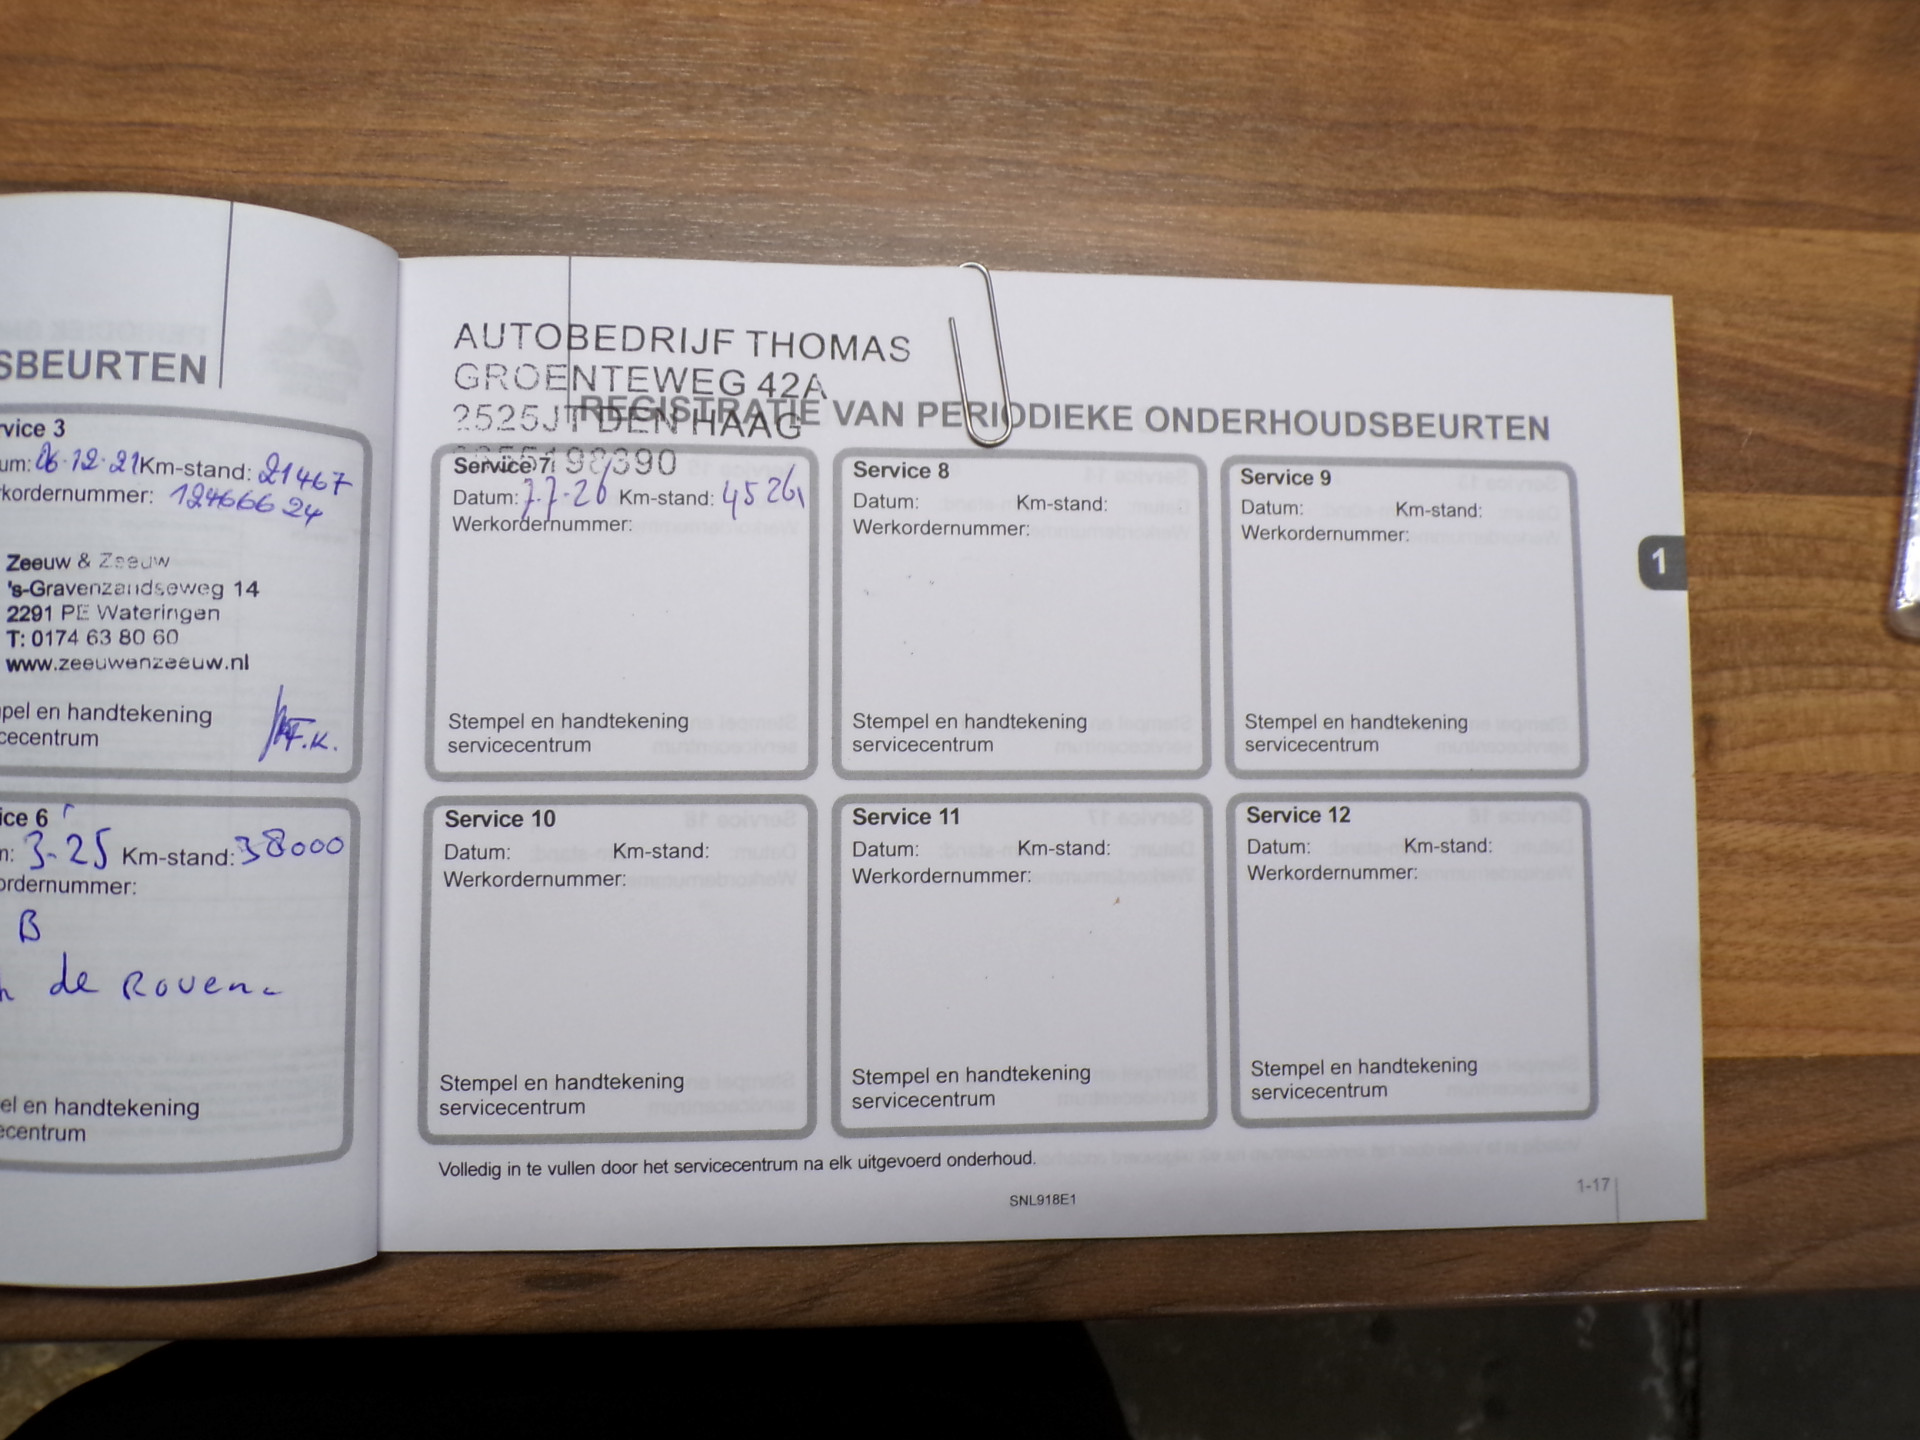 SBEURTEN
rvice 3
um: 06-12-21 Km-stand: 21467
kordernummer: 12466624
Zeeuw & Zeeuw
's-Gravenzandseweg 14
2291 PE Wateringen
T: 0174 63 80 60
www.zeeuwenzeeuw.nl
pel en handtekening
cecentrum
F.K.
ice 6
n: 3-25 Km-stand: 38000
ordernummer:
B
de Rouen
el en handtekening
ecentrum
AUTOBEDRIJF THOMAS
GROENTEWEG 42A
2525JT DEN HAAG
REGISTRATIE VAN PERIODIEKE ONDERHOUDSBEURTEN
Service 7
Datum: 7-7-26 Km-stand: 45261
Werkordernummer:
Stempel en handtekening
servicecentrum
Service 8
Datum: Km-stand:
Werkordernummer:
Stempel en handtekening
servicecentrum
Service 9
Datum: Km-stand:
Werkordernummer:
Stempel en handtekening
servicecentrum
1
Service 10
Datum: Km-stand:
Werkordernummer:
Stempel en handtekening
servicecentrum
Service 11
Datum: Km-stand:
Werkordernummer:
Stempel en handtekening
servicecentrum
Service 12
Datum: Km-stand:
Werkordernummer:
Stempel en handtekening
servicecentrum
Volledig in te vullen door het servicecentrum na elk uitgevoerd onderhoud.
SNL918E1
1-17